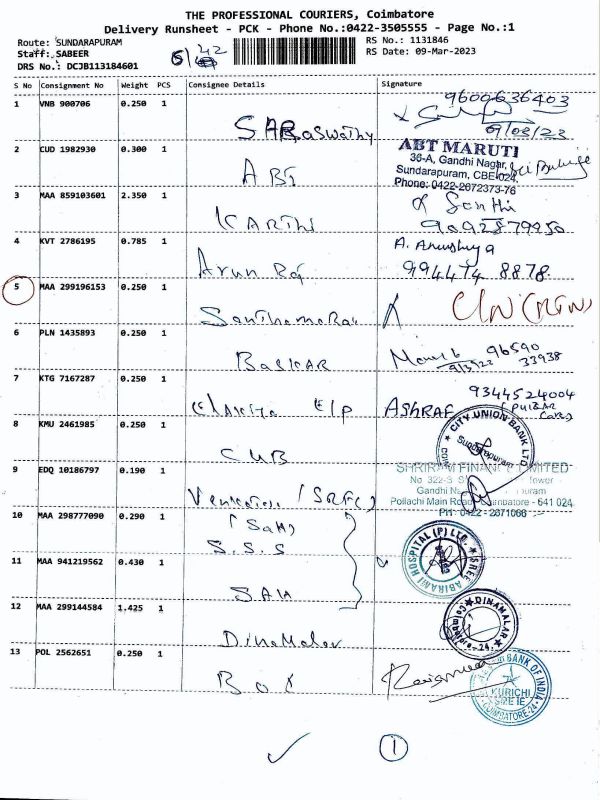 THE PROFESSIONAL COURIERS, Coimbatore
Delivery Runsheet - PCK - Phone No.:0422-3505555 - Page No.:1
Route: SUNDARAPURAM
Staff: SABEER
DRS No.: DCJB113184601
RS No.: 1131846
RS Date: 09-Mar-2023
S No Consignment No Weight PCS Consignee Details Signature
1 VNB 900706 0.250 1 9600636403
09/03/23
2 CUD 1982930 0.300 1 ABT
ABT MARUTI
36-A, Gandhi Nagar,
Sundarapuram, CBE-024.
Phone: 0422-2672373-76
3 MAA 859103601 2.350 1 KARTHI
9092879950
4 KVT 2786195 0.785 1 Arun Raj A. Anushya
994474 8878
5 MAA 299196153 0.250 1
6 PLN 1435893 0.250 1 BASKAR 96590
33938
7 KTG 7167287 0.250 1 ASHRAF 9344524004
8 KMU 2461985 0.250 1 CUB CITY UNION BANK LTD
Sundarapuram
9 EDQ 10186797 0.190 1
SHRIRAM FINANCE LIMITED
No 322-3
Gandhi
Pollachi Main Road, Coimbatore - 641 024.
PH: 0422 - 2671066
10 MAA 298777090 0.290 1 (SAH)
S.S.S
11 MAA 941219562 0.430 1 SAH SREE ABIRAMI HOSPITAL (P) LTD.
12 MAA 299144584 1.425 1 Dinamalar DINAMALAR
13 POL 2562651 0.250 1 BOI BANK OF INDIA
KURICHI
COIMBATORE-24
1